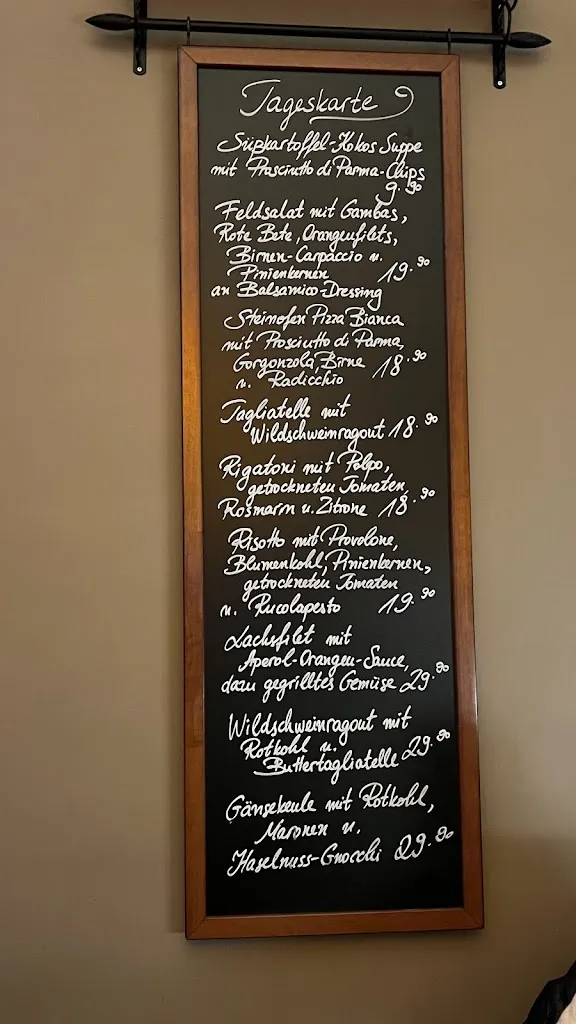 Tageskarte
Süßkartoffel-Kokos Suppe
mit Prosciutto di Parma-Chips
9.90
Feldsalat mit Gambas,
Rote Bete, Orangenfilets,
Birnen-Carpaccio u.
Pinienkernen 19.90
an Balsamico-Dressing
Steinofen Pizza Bianca
mit Prosciutto di Parma,
Gorgonzola, Birne 18.90
u. Radicchio
Tagliatelle mit
Wildschweinragout 18.90
Rigatoni mit Polpo,
getrockneten Tomaten,
Rosmarin u. Zitrone 18.90
Risotto mit Provolone,
Blumenkohl, Pinienkernen,
getrockneten Tomaten
u. Rucolapesto 19.90
Lachsfilet mit
Aperol-Orangen-Sauce,
dazu gegrilltes Gemüse 29.90
Wildschweinragout mit
Rotkohl u.
Buttertagliatelle 29.90
Gänsekeule mit Rotkohl,
Maronen u.
Haselnuss-Gnocchi 29.90